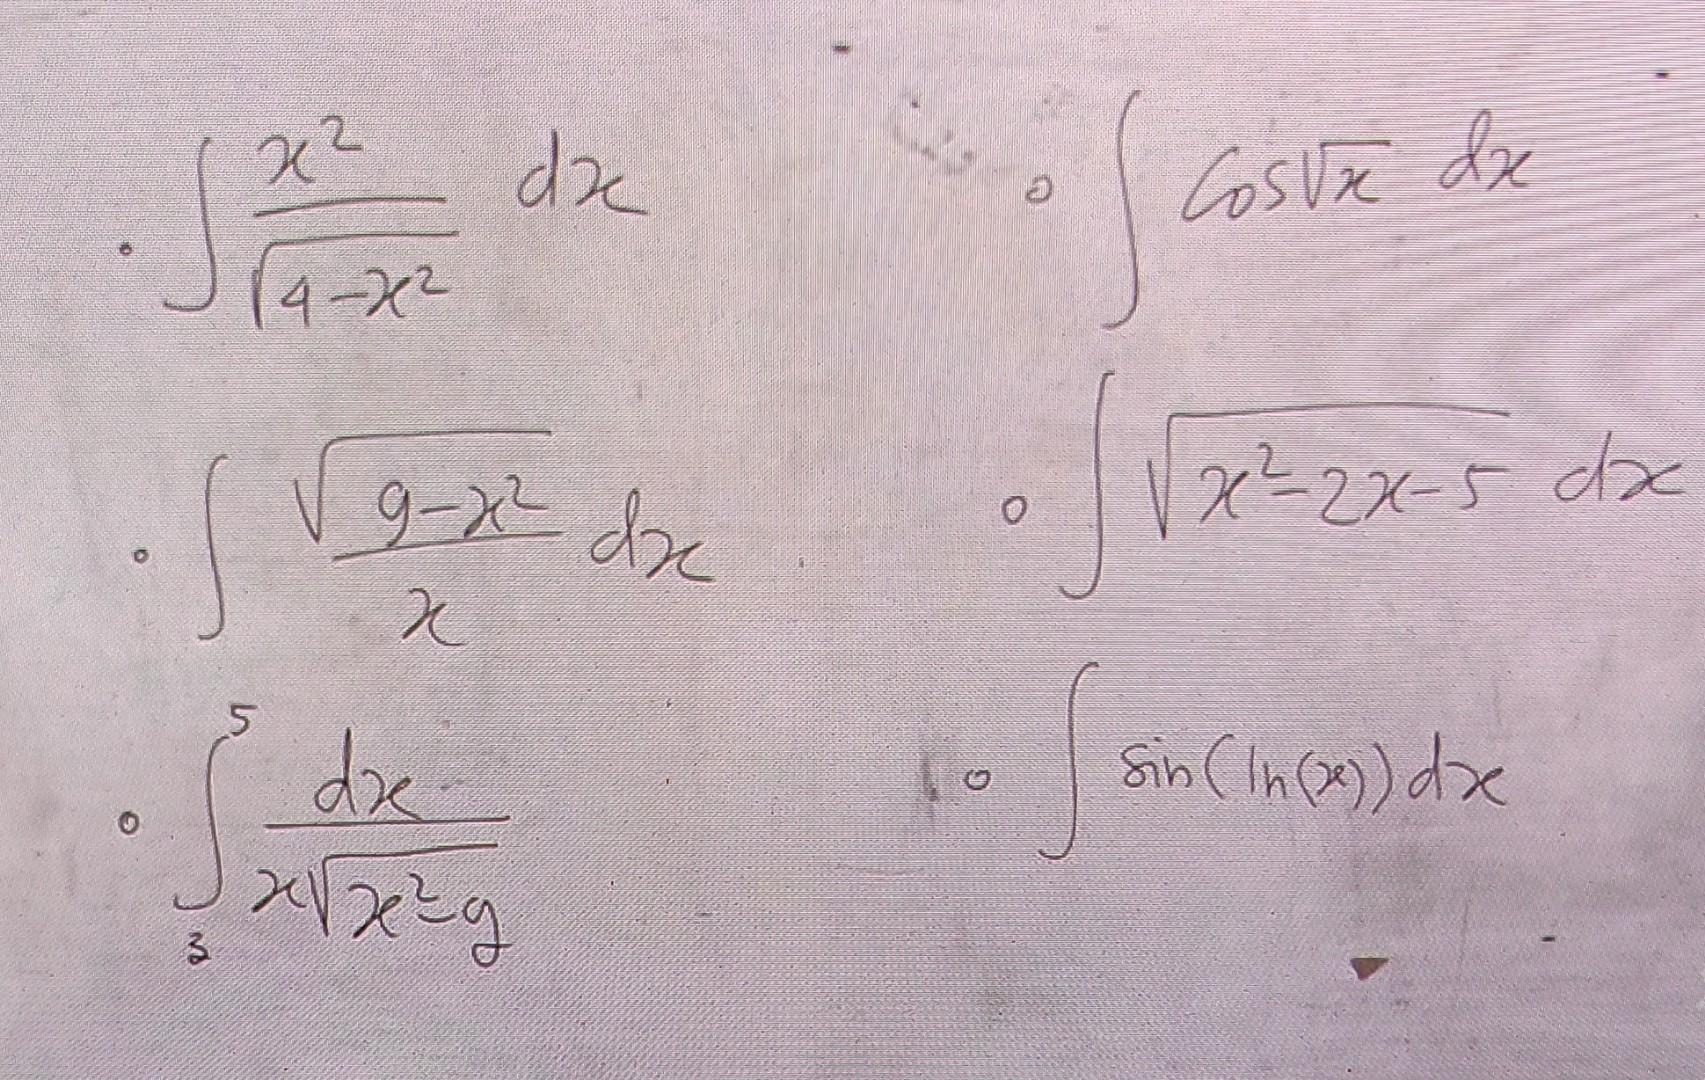 ∫ x²/√(4-x²) dx
∫ √(9-x²)/x dx
∫₃⁵ dx/(x√(x²-9))
∫ cos√x dx
∫ √(x²-2x-5) dx
∫ sin(ln(x)) dx